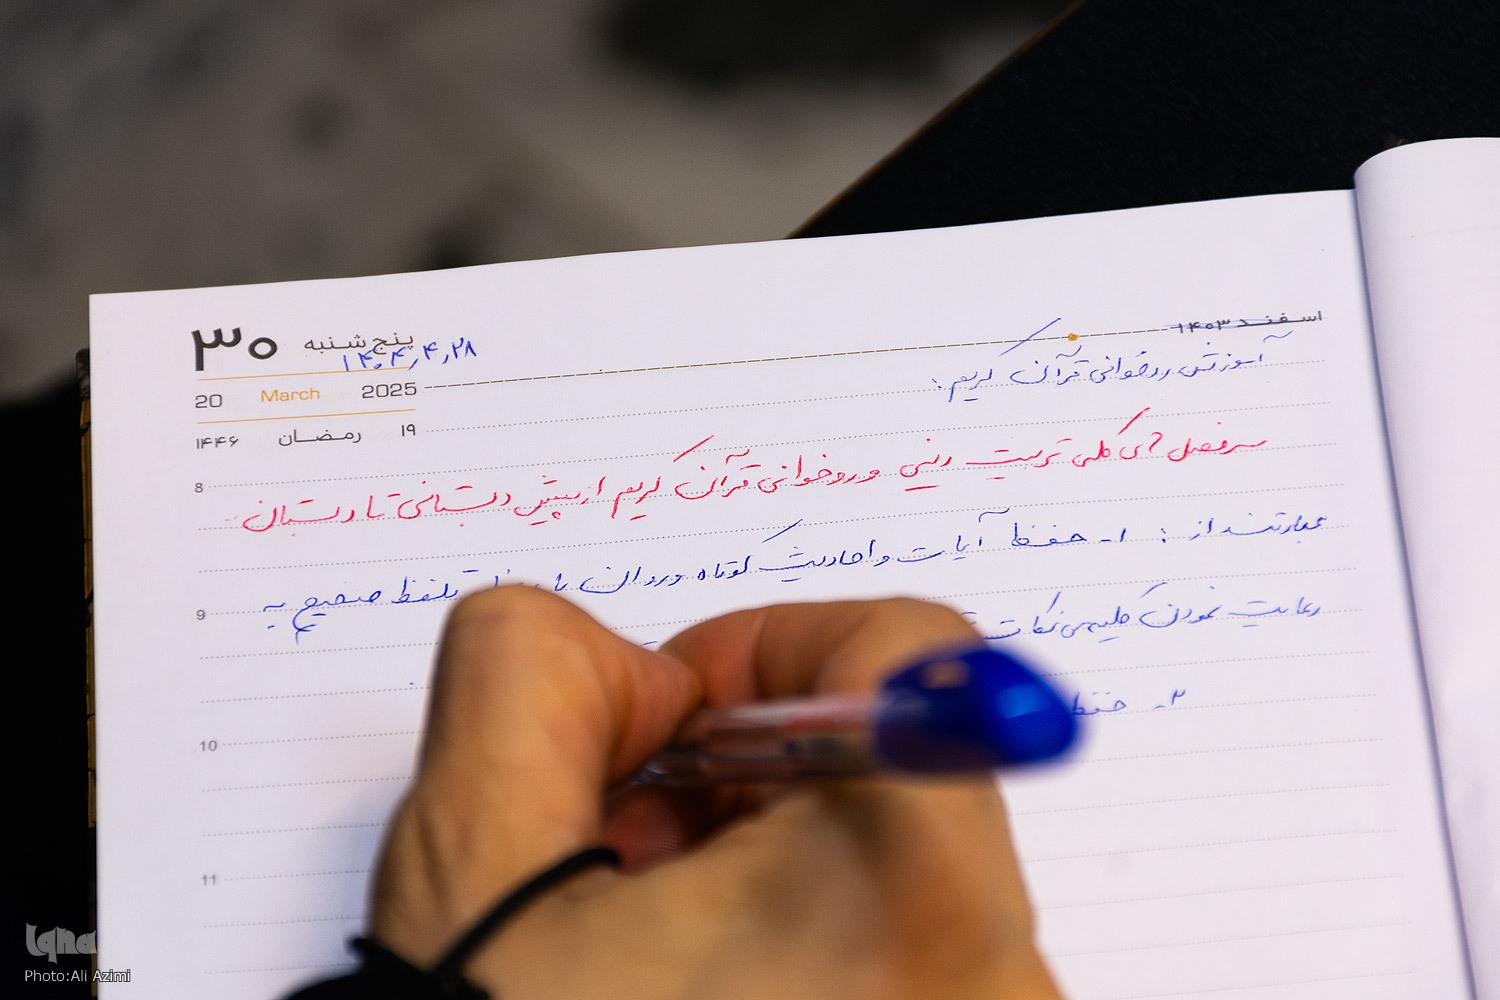 اسفند ۱۴۰۳
۳۰ پنج شنبه
۱۴۰۴٫۴٫۲۸
20 March 2025
۱۹ رمضان ۱۴۴۶
آموزش روخوانی قرآن کریم :
8
سرفصل های کلی تربیت دینی و روخوانی قرآن کریم از پیش دبستانی تا دبستان
عبارتند از : ۱- حفظ آیات و احادیث کوتاه و روان با تلفظ صحیح به
9
رعایت نمودن کلیه ی نکات
۲- حفظ
10
11
iqna
Photo:Ali Azimi